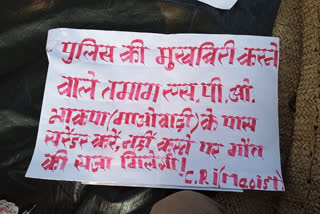 पुलिस की मुखबिरी करने
वाले तमाम एस.पी.ओ.
भाकपा (माओवादी) के पास
सरेंडर करें, नहीं करने पर मौत
की सजा मिलेगी!
-C.P.I(Maoist)